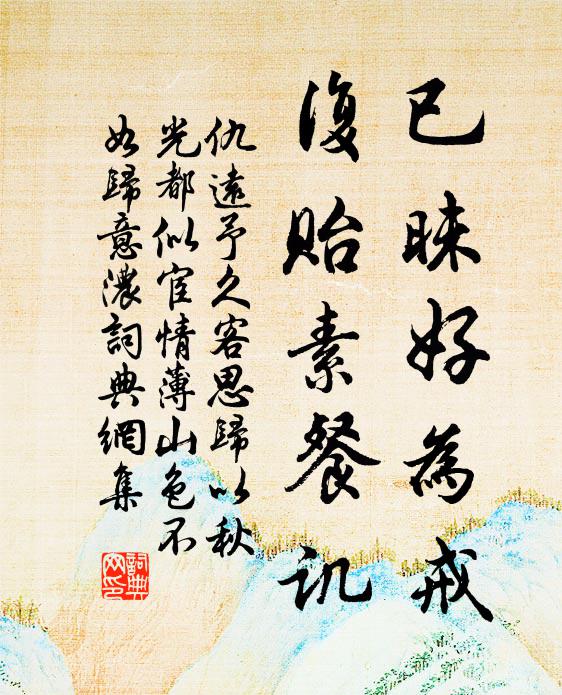 已昧好為戒
復貽素餐讥
仇遠予久客思歸以秋
光都似宦情薄山色不
如歸意濃詞典網集
詞典
網印